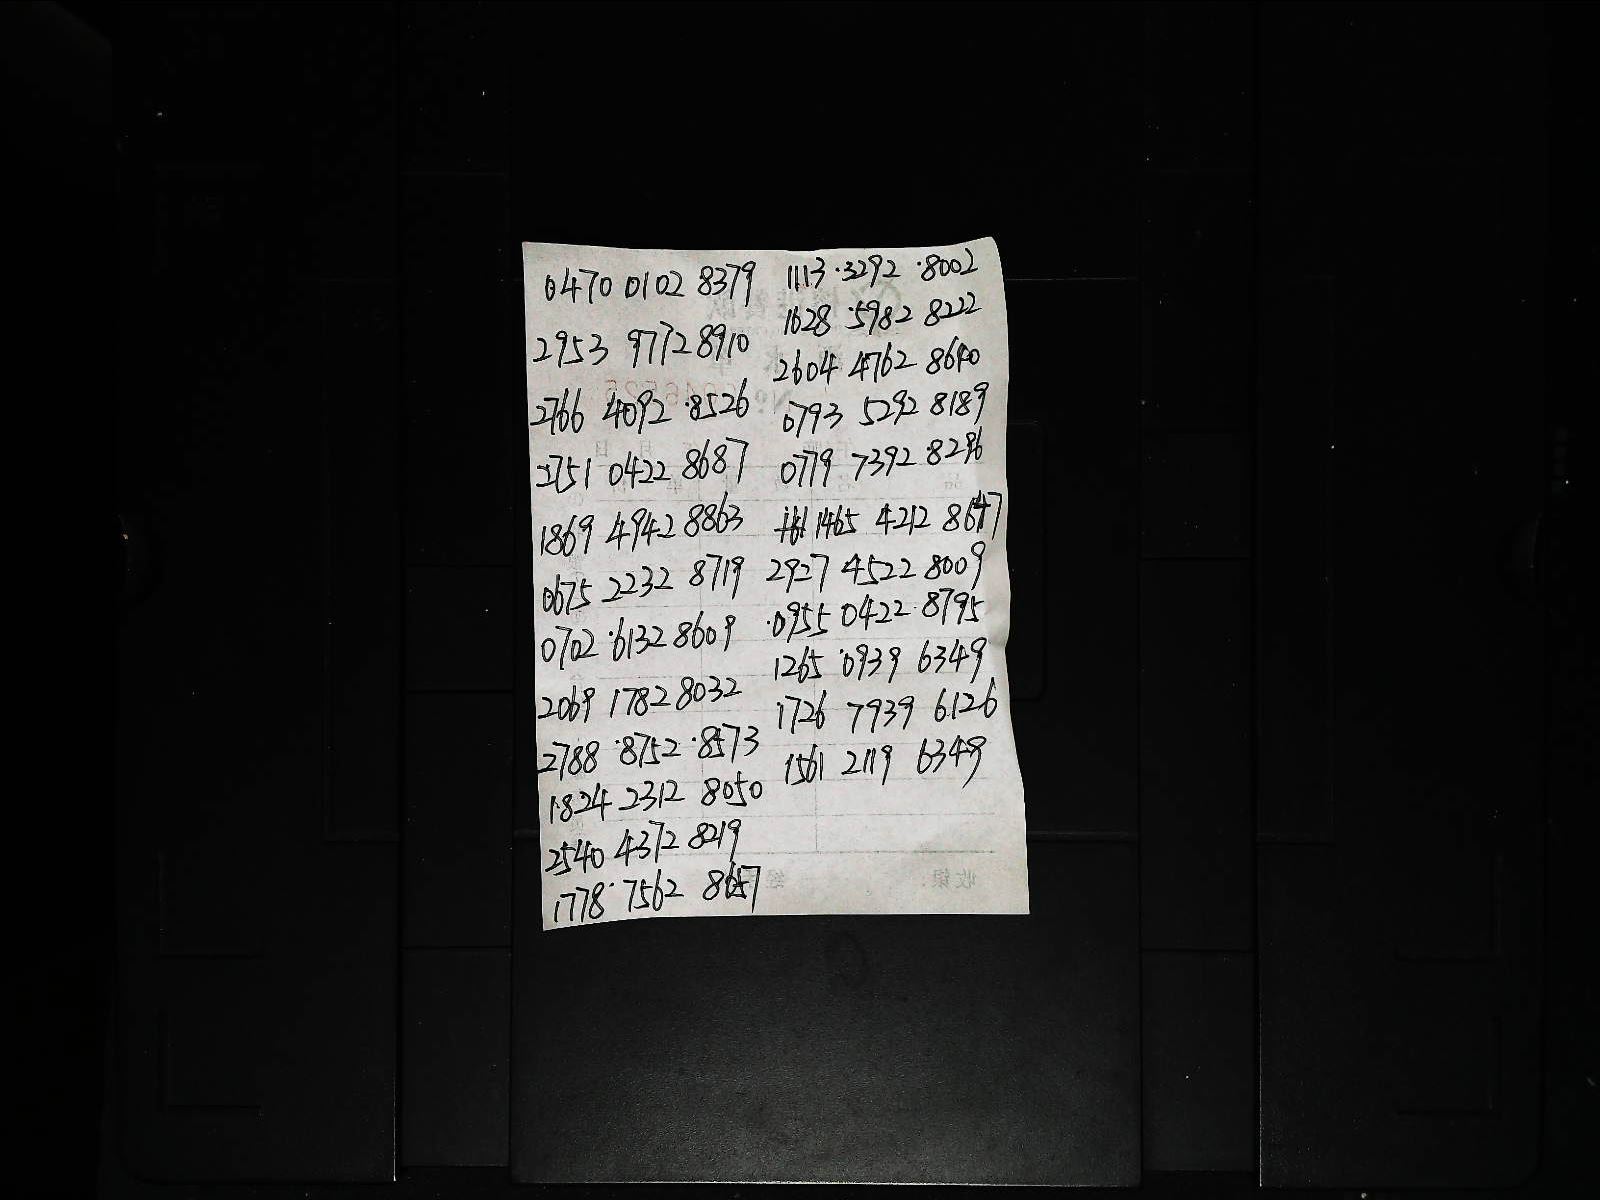 0470 0102 8379
2953 9772 8910
2766 4092 8526
2751 0422 8687
1869 4942 8863
0675 2232 8719
0702 6132 8609
2069 1782 8032
2788 8752 8573
1824 2312 8050
2540 4372 8219
1778 7562 8657
1113 3292 8002
1628 5982 8222
2604 4762 8640
0793 5292 8189
0779 7392 8286
1465 4212 8647
2927 4522 8009
0955 0422 8795
1265 0939 6349
1726 7939 6126
1561 2119 6349
收银: